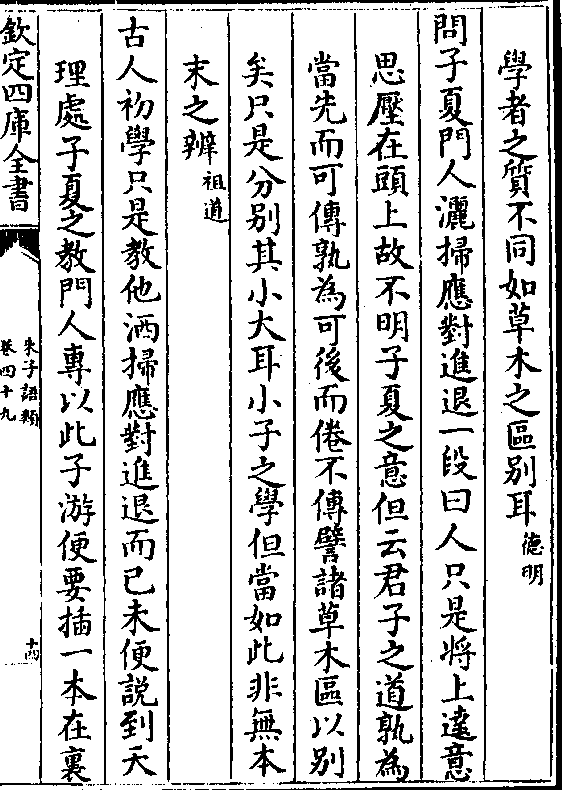 學者之質不同如草木之區别耳德明
問子夏門人灑掃應對進退一段曰人只是將上達意
思壓在頭上故不明子夏之意但云君子之道孰為
當先而可傳孰為可後而倦不傳譬諸草木區以别
矣只是分别其小大耳小子之學但當如此非無本
末之辨祖道
古人初學只是教他洒掃應對進退而已未便説到天
理處子夏之教門人專以此子游便要插一本在裏
欽定四庫全書
朱子語類
卷四十九
十四